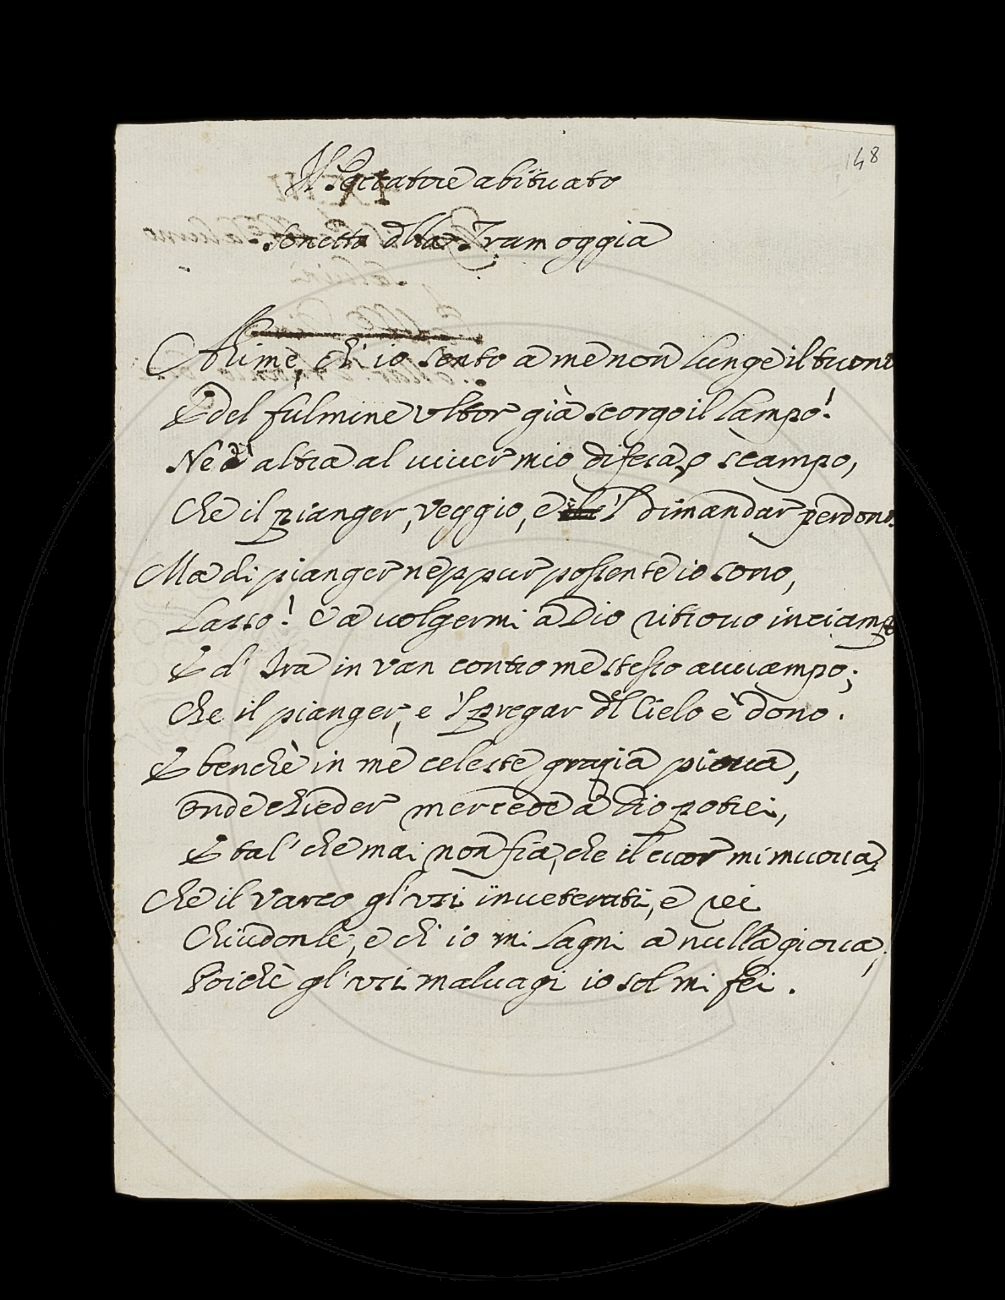 148
Il Peccatore abituato
Sonetto dlla Tramoggia
Ahimè, ch'io sento a me non lunge il tuono
E del fulmine ultor già scorgo il lampo!
Nè v' altra al viver mio difesa, o scampo,
Che il pianger, veggio, e 'l dimandar perdono.
Ma di pianger neppur possente io sono,
Lasso! e a volgermi a Dio ritrovo inciampo
E d' Ira in van contro me stesso avvampo;
Che il pianger, e 'l pregar dl Cielo è dono.
E benchè in me celeste grazia piova,
Onde chieder mercede a Dio potrei,
E tal' che mai non fia, che il cuor mi muova,
Che il varco gl'usi inveterati, e rei
Chiudonle, e ch' io mi lagni a nulla giova,
Poichè gl'usi malvagi io sol mi fei.